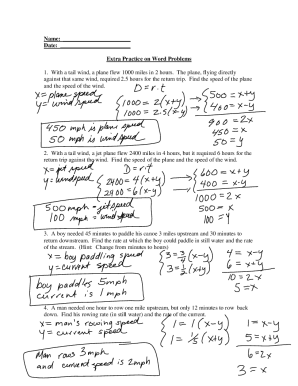 Name:
Date:
Extra Practice on Word Problems
1. With a tail wind, a plane flew 1000 miles in 2 hours. The plane, flying directly
against that same wind, required 2.5 hours for the return trip. Find the speed of the plane
and the speed of the wind.
D=r.t
x=plane speed
y=wind speed
{1000=2(x+y)
1000=2.5(x-y)
{500=x+y
400=x-y
900=2x
450=x
50=y
450 mph is plane speed
50 mph is wind speed
2. With a tail wind, a jet plane flew 2400 miles in 4 hours, but it required 6 hours for the
return trip against the wind. Find the speed of the plane and the speed of the wind.
x=jet speed
D=r.t
y=wind speed
{2400=4(x+y)
2400=6(x-y)
{600=x+y
400=x-y
1000=2x
500=x
100=y
500mph=jet speed
100 mph=wind speed
3. A boy needed 45 minutes to paddle his canoe 3 miles upstream and 30 minutes to
return downstream. Find the rate at which the boy could paddle in still water and the rate
of the stream. (Hint: Change from minutes to hours)
x=boy paddling speed
y=current speed
{3=3/4(x-y)
3=1/2(x+y)
4=x-y
6=x+y
10=2x
5=x
boy paddles 5mph
current is 1 mph
4. A man needed one hour to row one mile upstream, but only 12 minutes to row back
down. Find his rowing rate (in still water) and the rate of the current.
x=man's rowing speed
y=current speed
{1=1(x-y)
1=1/5(x+y)
1=x-y
5=x+y
6=2x
3=x
Man rows 3mph
and current speed is 2mph